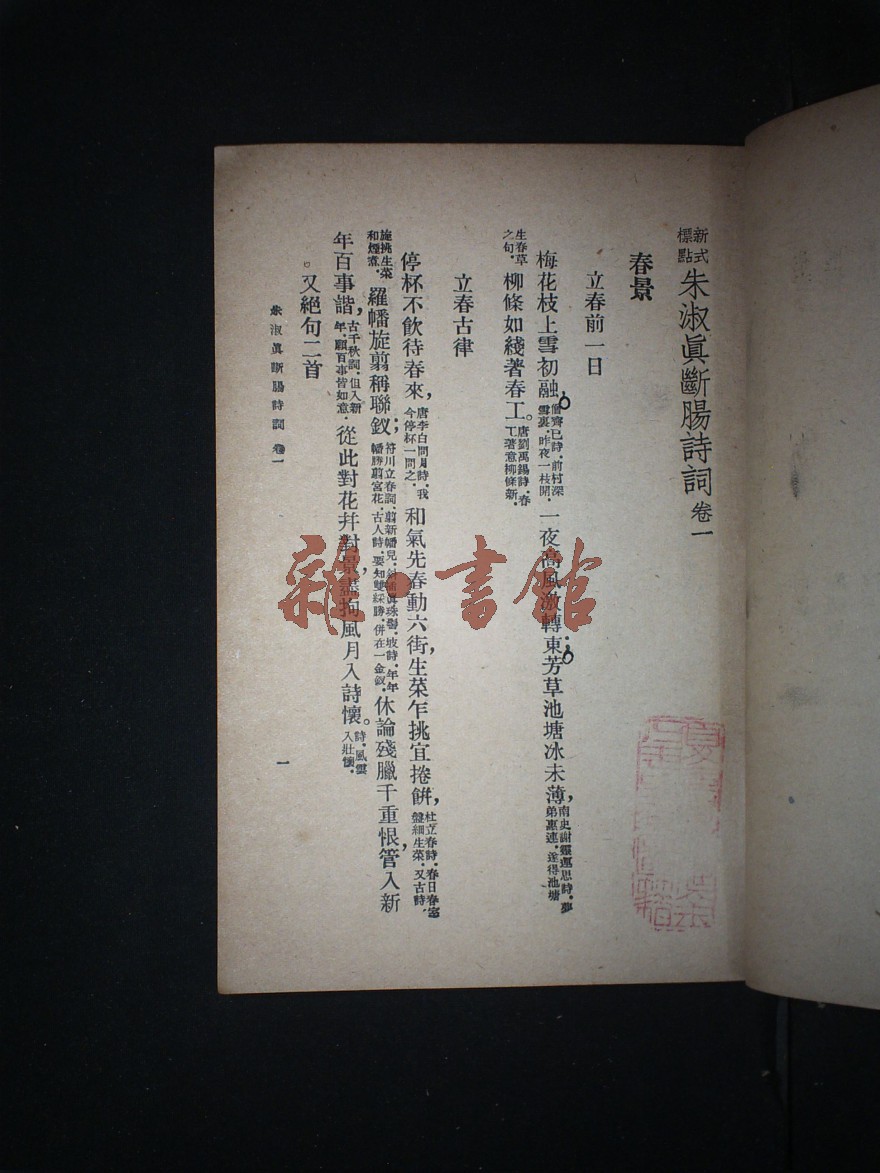 新式標點 朱淑眞斷腸詩詞 卷一
春景
立春前一日
梅花枝上雪初融，僧齊巳詩，前村深雪裏，昨夜一枝開。一夜高風激轉東；芳草池塘冰未薄，南史謝靈運思詩，夢弟惠連，遂得池塘
生春草之句。柳條如綫著春工。唐劉禹錫詩，春工著意柳條新。
立春古律
停杯不飲待春來，唐李白問月詩，我今停杯一問之。和氣先春動六街，生菜乍挑宜捲餅，杜立春詩，春日春盤細生菜，又古詩，
旋挑生菜和煙煮。羅幡旋翦稱聯釵；符川立春詞，翦新幡見，斜插眞珠髻，坡詩，年年幡勝翦宮花，古人詩，要知雙綵勝，併在一金釵。休論殘臘千重恨，管入新
年百事諧，古千秋詞，但入新年，願百事皆如意。從此對花幷對景，盡拘風月入詩懷。詩，風雲入壯懷。
又絕句二首
朱淑眞斷腸詩詞 卷一
一
雜·書館